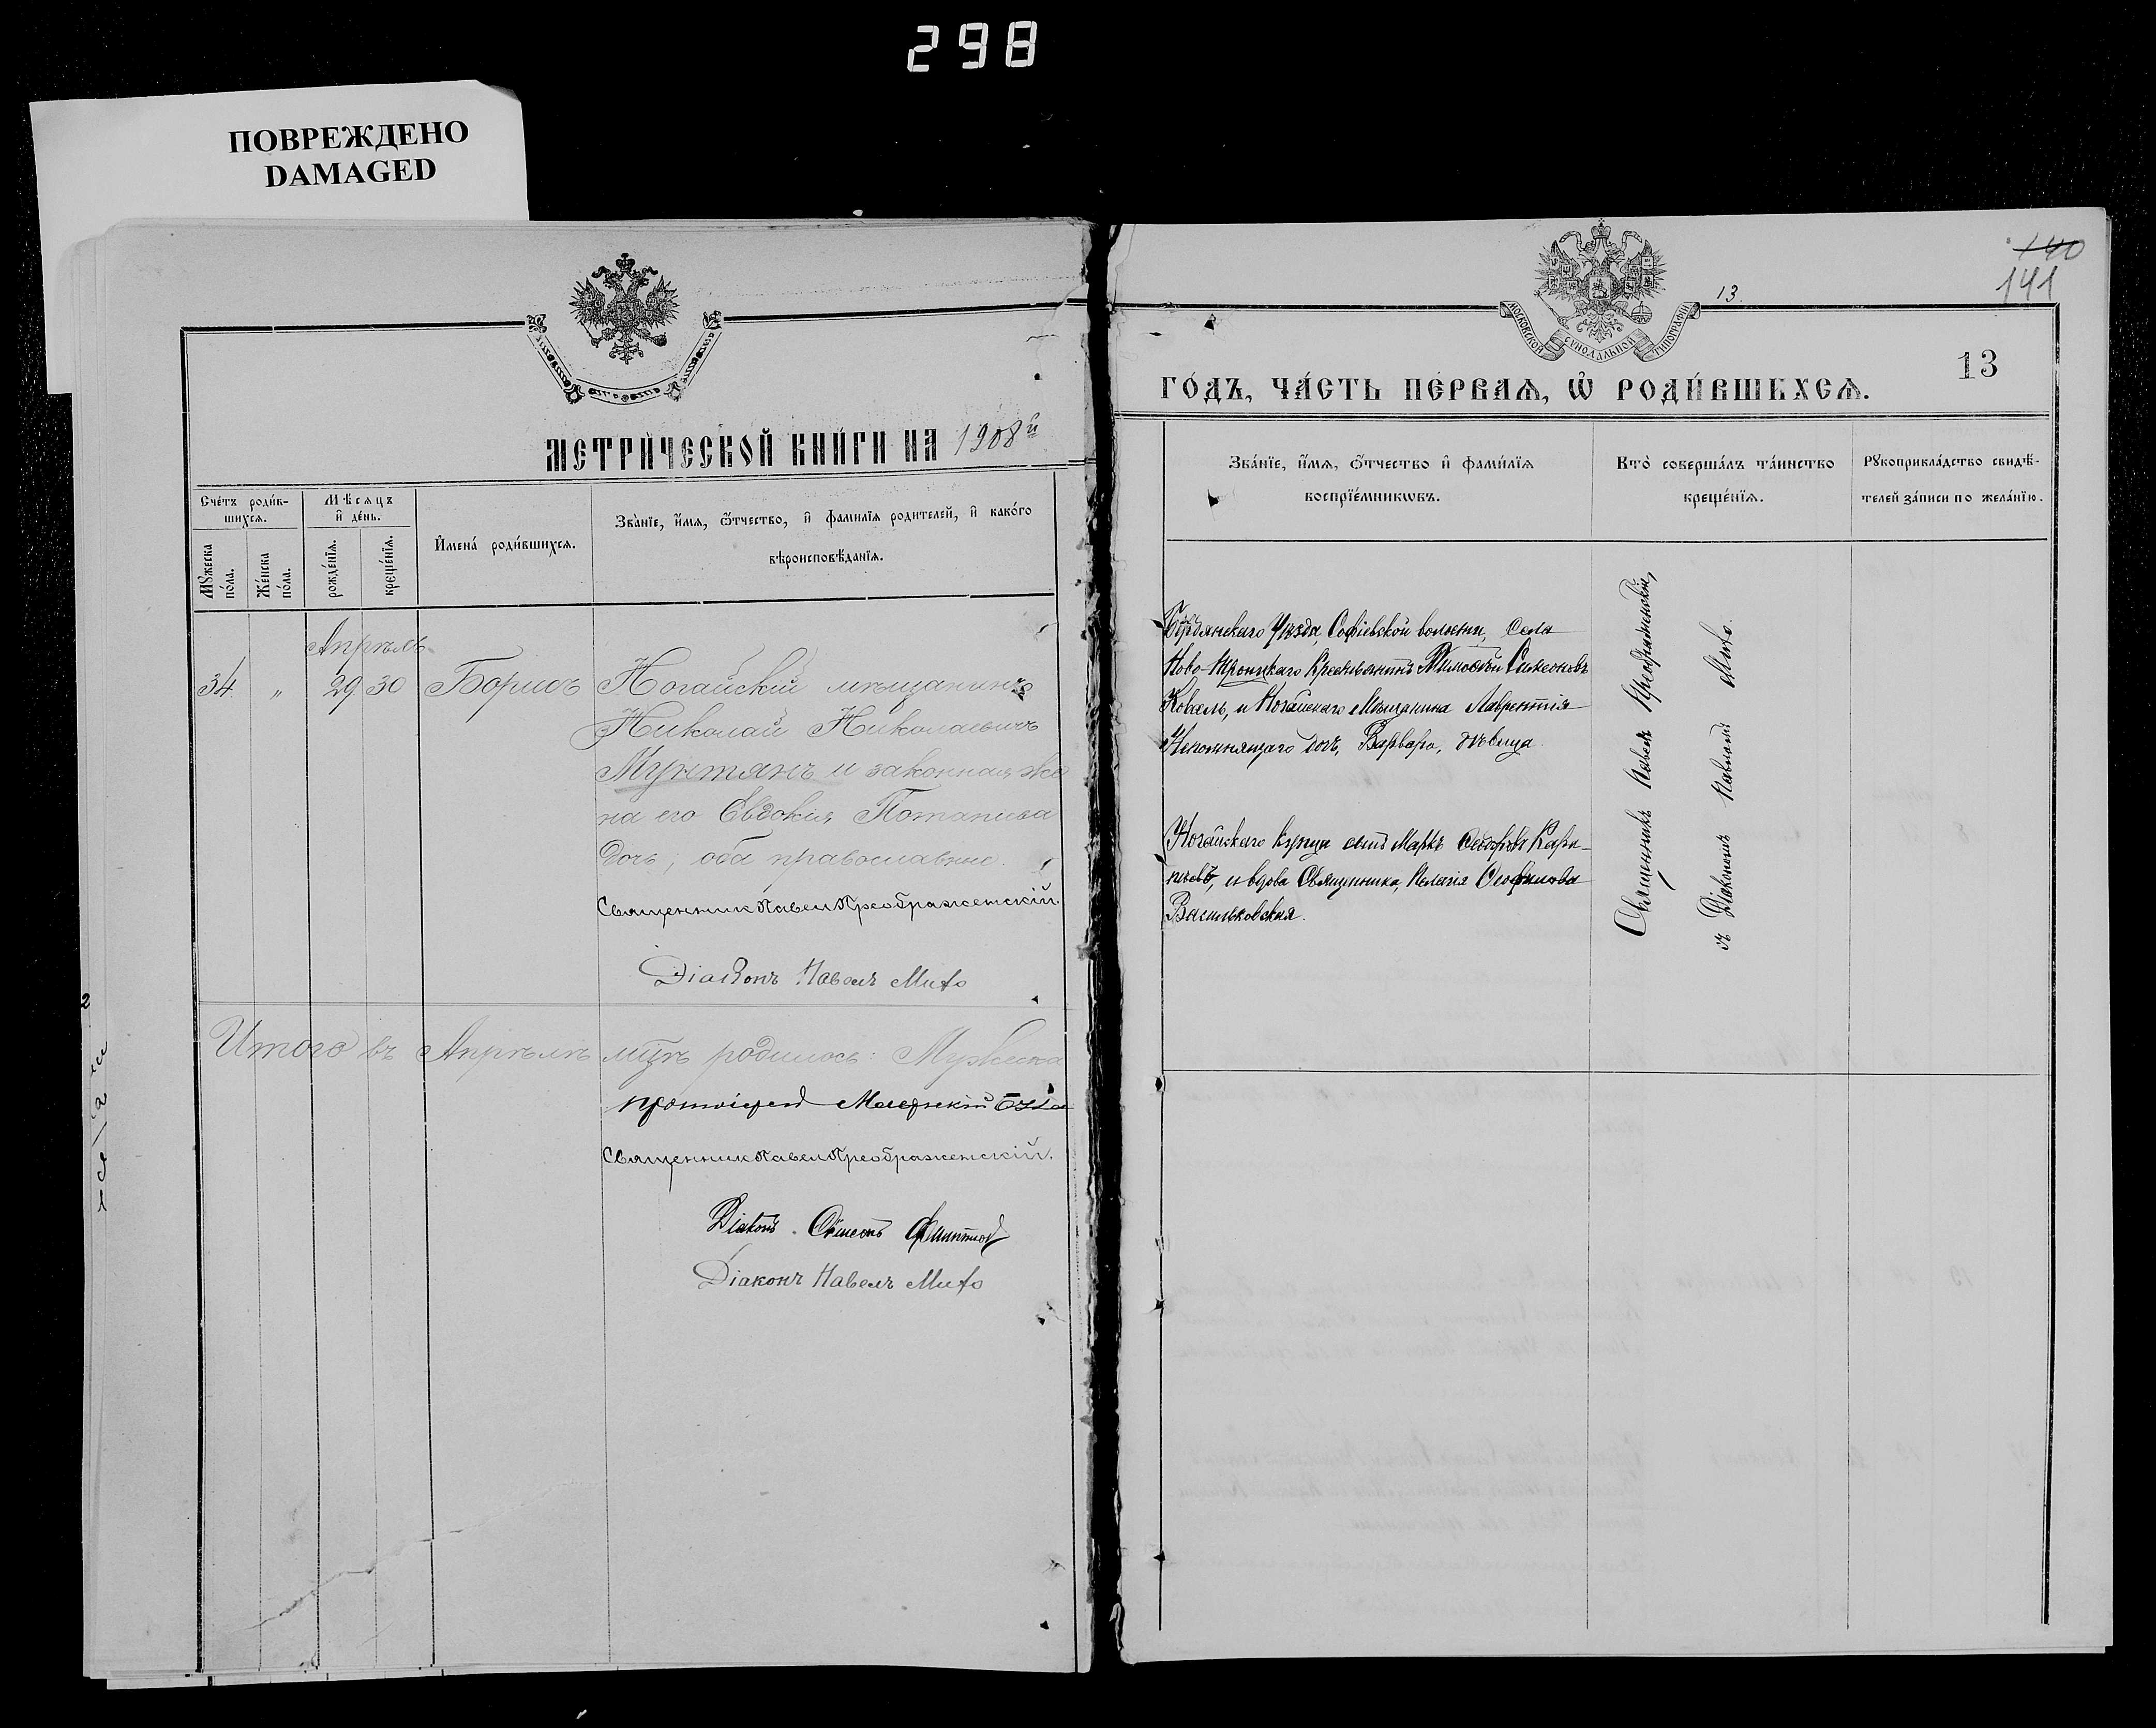 298
ПОВРЕЖДЕНО
DAMAGED
МЕТРИ́ЧЕСКОЙ КНИ́ГИ НА 1908й
Сче́тъ роди́в-
шихсѧ.
Мѣ́сѧцъ
и҆ де́нь.
Мꙋ́жеска
по́ла.
Же́нска
по́ла.
рожде́нїѧ.
креще́нїѧ.
И҆мена́ роди́вшихсѧ.
Зва́нїе, и҆́мѧ, ѻ҆́тчество, и҆ фами́лїѧ роди́телей, и҆ како́гѡ
вѣроисповѣ́данїѧ.
Апрѣль
34 " 29 30 Борисъ Ногайскій мѣщанинъ
Николай Николаевичъ
Мунтянъ и законная же
на его Евдокія Потапіева
дочь, оба православные.
Священник Павел Преображенскій.
Діаконъ Павелъ Мито
Итого въ Апрѣлѣ мцѣ родилось: Мужеска
протоіерей
Священник Павел Преображенскій.
Діаконъ Симеонъ
Діаконъ Павелъ Мито
МОСКОВСКОЙ СѴНОДАЛЬНОЙ ТИПОГРАФІИ
13.
140
141
13
ГО́ДЪ, ЧА́СТЬ ПЕ́РВАѦ, Ѽ РОДИ́ВШИХСѦ.
Зва́нїе, и҆́мѧ, ѻ҆́тчество и҆ фами́лїѧ
воспрїе́мникѡвъ.
Кто̀ соверша́лъ та́инство
креще́нїѧ.
Рꙋкоприкла́дство свидѣ́-
телей за́писи по жела́нїю.
Бердянскаго уѣзда, Софіевской волости, села
Ново-Троицкаго крестьянинъ Тимофѣй Симеоновъ
Коваль, и Ногайскаго Мѣщанина Лаврентія
Непомнящаго дочь, Варвара, дѣвица.
Ногайскаго купца сынъ Маркъ Ѳеодоровъ Карп-
, и вдова Священника, Пелагія Ѳеофилова
Васильковская.
Священникъ Павелъ Преображенскій,
съ Діакономъ Павломъ Мито.